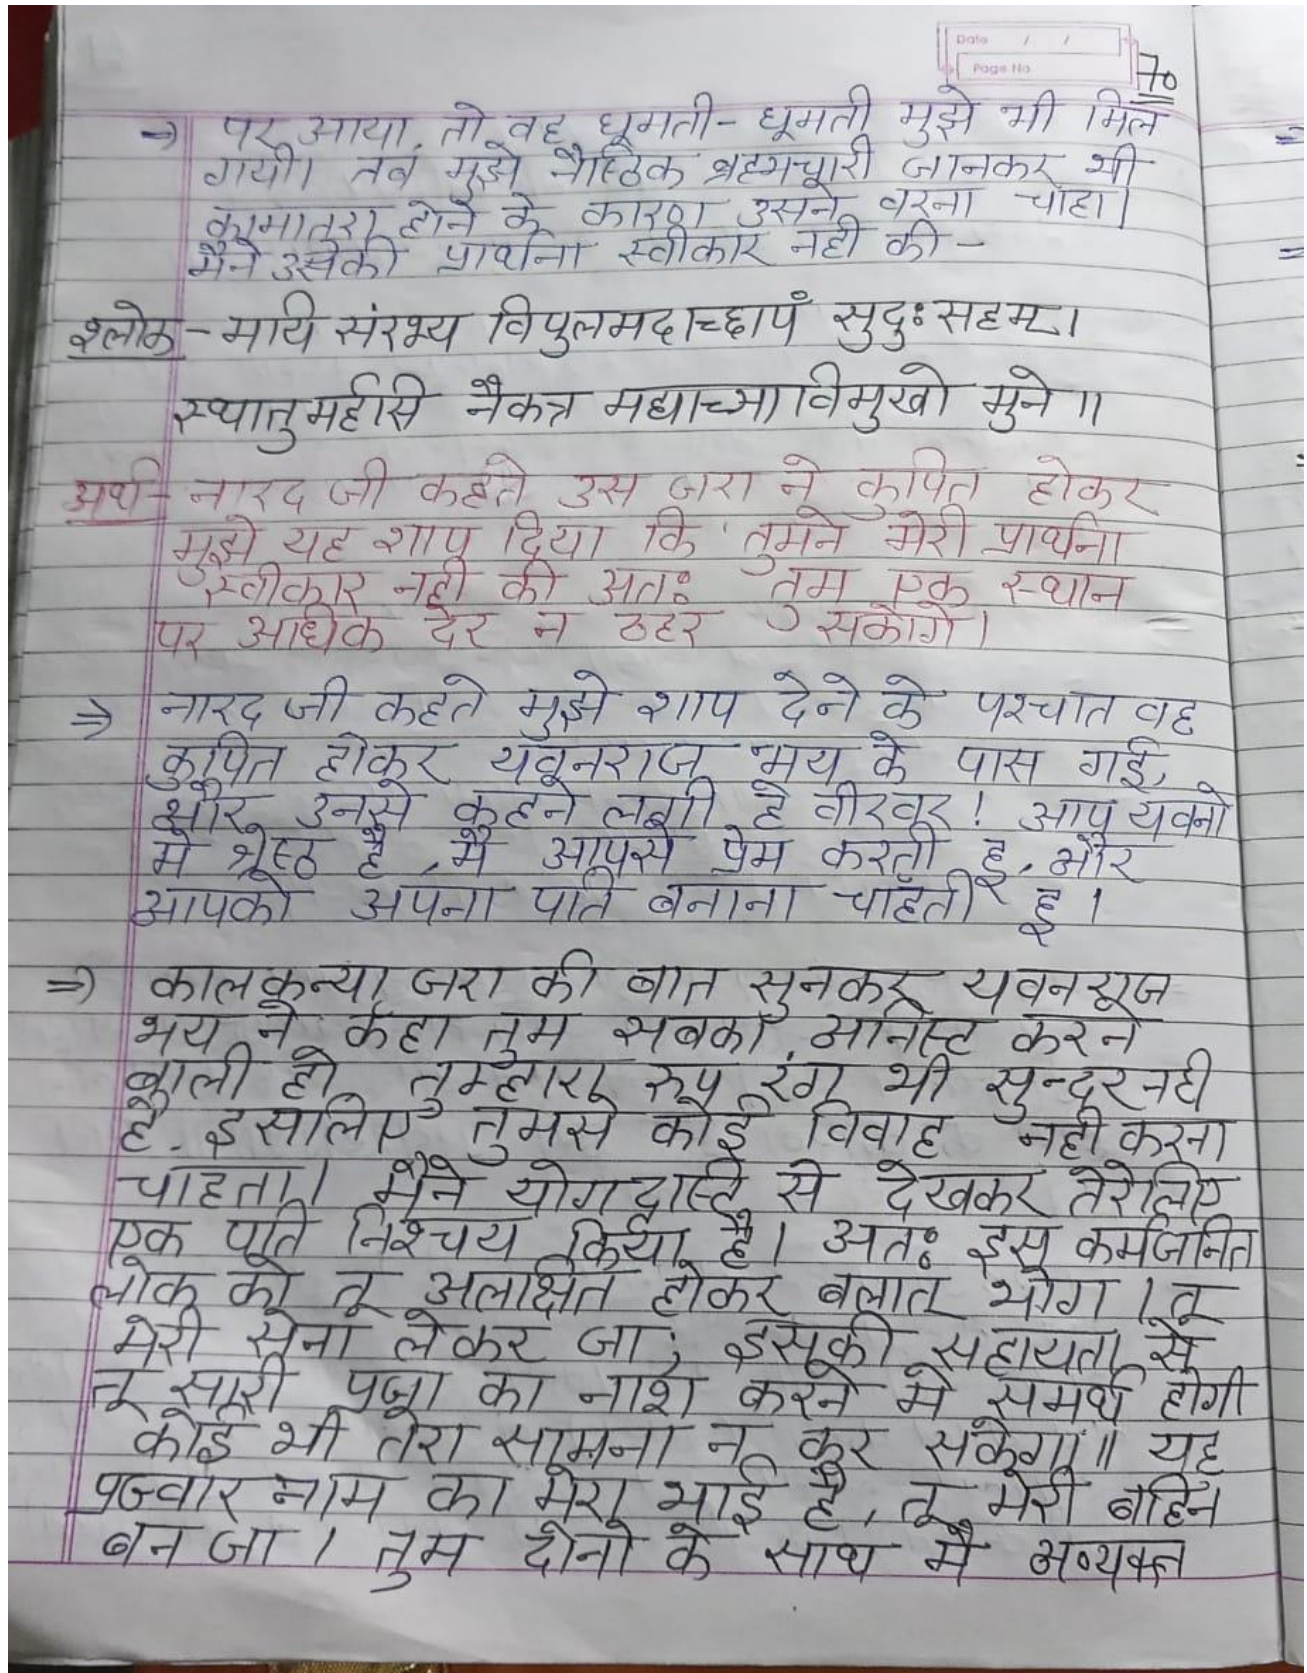 Date / /
Page No
70
⇒ पर आया, तो वह घूमती - घूमती मुझे भी मिल
गयी। तब मुझे नैष्ठिक ब्रह्मचारी जानकर भी
कामातुरा होने के कारण उसने वरना चाहा।
मैने उसकी प्रार्थना स्वीकार नही की -
श्लोक - मयि संरभ्य विपुलमदाच्छापं सुदुः सहम्।
स्थातुमर्हसि नैकत्र मद्याच्ञाविमुखो मुने॥
अर्थ - नारद जी कहते उस जरा ने कुपित होकर
मुझे यह शाप दिया कि 'तुमने मेरी प्रार्थना
स्वीकार नही की अतः तुम एक स्थान
पर अधिक देर न ठहर सकोगे।
⇒ नारद जी कहते मुझे शाप देने के पश्चात वह
कुपित होकर यवनराज भय के पास गई,
और उनसे कहने लगी हे वीरवर! आप यवनो
मे श्रेष्ठ है, मै आपसे प्रेम करती हू, और
आपको अपना पति बनाना चाहती हू।
⇒ कालकन्या जरा की बात सुनकर यवनराज
भय ने कहा तुम सबका अनिष्ट करने
वाली हो, तुम्हारा रुप रंग भी सुन्दर नही
है. इसलिए तुमसे कोई विवाह नही करना
चाहता। मैने योगदृष्टि से देखकर तेरे लिए
एक पति निश्चय किया है। अतः इस कर्मजनित
लोक को तू अलक्षित होकर बलात् भोग। तू
मेरी सेना लेकर जा, इसकी सहायता से
तू सारी प्रजा का नाश करने मे समर्थ होगी
कोई भी तेरा सामना न कर सकेगा॥ यह
प्रज्वार नाम का मेरा भाई है, तू मेरी बहिन
बन जा। तुम दोनो के साथ मै अव्यक्त